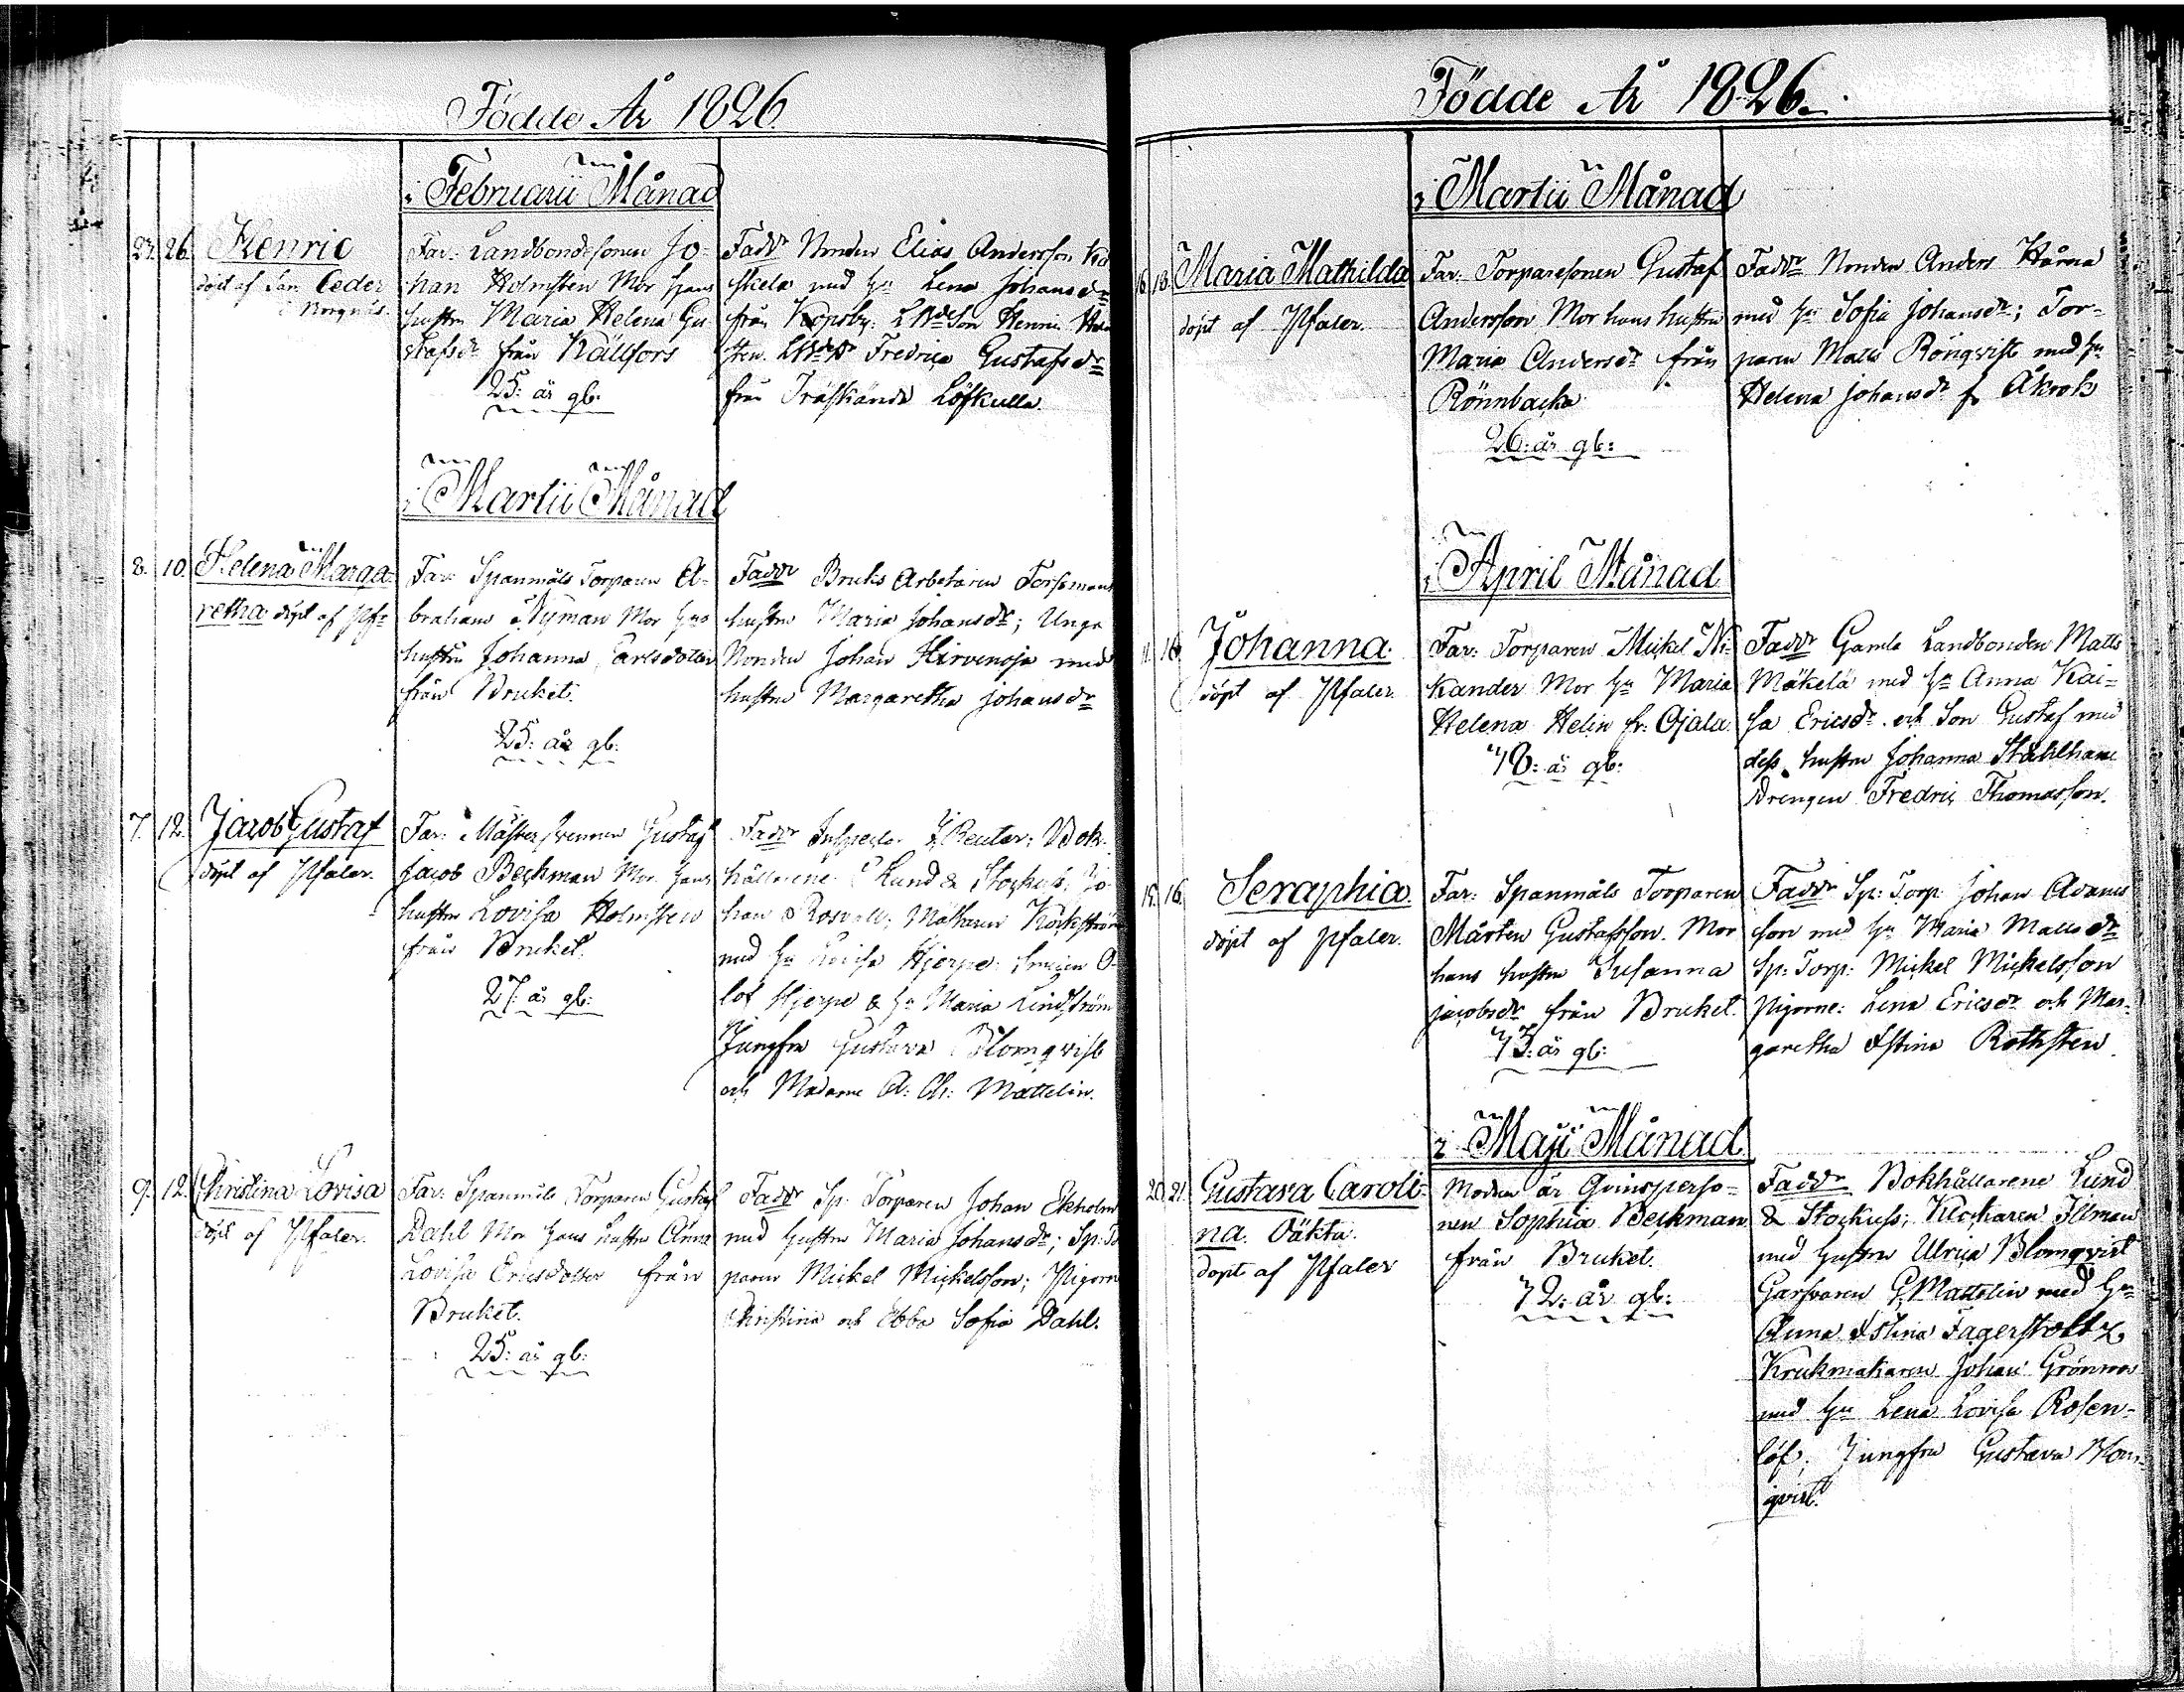 Födde År 1826.
i Februarii Månad
27. 26. Henric
döpt af
Far: Landbondesonen Jo-
han Holmsten Mor hans
hustru Maria Helena Gu
stafsdr från Källfors
25: år gb:
Faddr Bonden Elias Andersson
med hu Lena Johansdr
från Kopsby: LBdeson Henric
Fredrica Gustafsdr
från Träskända Löfkulla.
i Martii Månad
8. 10. Helena Marga-
retha döpt af Pfr
Far: Spanmåls Torparen A-
braham Nyman Mor hans
hustru Johanna Carlsdotter
från Bruket.
25: år gb:
Faddr Bruks Arbetaren Forssmans
hustru Maria Johansdr; Unge
Bonden Johan Hirvenoja med
hustru Margaretha Johansdr
7. 12. Jacob Gustaf
döpt af Pfaler.
Far: Mästersvennen Gustaf
Jacob Beckman Mor hans
hustru Lovisa Holmsten
från Bruket.
27: år gb:
Faddr Inspector J. Reuter; Bok-
hållarene Lund & Stockus; Jo-
han Rosvall; Mästaren
med hu Hjerpe: Smeden O-
lof Hjerpe & hu Maria Lindström
Jungfru Gustava Blomqvist
och Madame A: Ch: Mattelin.
9. 12. Christina Lovisa
döpt af Pfaler.
Far: Spanmåls Torparen Gustaf
Dahl Mor hans hustru Anna
Lovisa Ericsdotter från
Bruket.
25: år gb:
Faddr Sp: Torparen Johan Ekholm
med hustru Maria Johansdr; Sp: To
paren Mickel Mickelsson; Pigorn
Christina och Ebba Sofia Dahl.
Födde År 1826.
i Martii Månad
Maria Mathilda
döpt af Pfaler.
Far: Torparesonen Gustaf
Andersson Mor hans hustru
Maria Andersdr från
Rönnbacka
26: år gb:
Faddr Bonden Anders Hårna
med hu Sofia Johansdr; Tor-
paren Matts Rönqvist med hu
Helena Johansdr fr Åkrok
i April Månad
11. 16. Johanna.
döpt af Pfaler.
Far: Torparen Mickel Ni-
kander Mor hu Maria
Helena Helin fr: Ojala.
48: år gb:
Faddr Gamle Landbonden Matts
Mäkelä med hu Anna Kai-
sa Ericsdr och Son Gustaf med
dess hustru Johanna Stählhane
Drengen Fredric Thomasson.
15. 16. Seraphia.
döpt af Pfaler.
Far: Spanmåls Torparen
Mårten Gustafsson. Mor
hans hustru Susanna
Jacobsdr från Bruket.
43: år gb:
Faddr Sp: Torp: Johan Adams
son med hu Maria Mattsdr
Sp: Torp: Mickel Mickelsson
Pigorne: Lena Ericsdr och Mar-
garetha Stina Rothsten
i Maji Månad
20. 21. Gustava Caroli-
na. Oäkta.
döpt af Pfaler
Modren är Qvinsperso-
nen Sophia Beckman
från Bruket.
42: år gb:
Faddr Bokhållarene Lund
& Stockuss; Klockaren Illman
med hustru Ulrica Blomqvist
Garfvaren G. Mattelin med hu
Anna Stina Fagerstoltz
Krukmakaren Johan Grönroos
med hu Lena Lovisa Rosen-
löf; Jungfru Gustava Blom-
qvist.